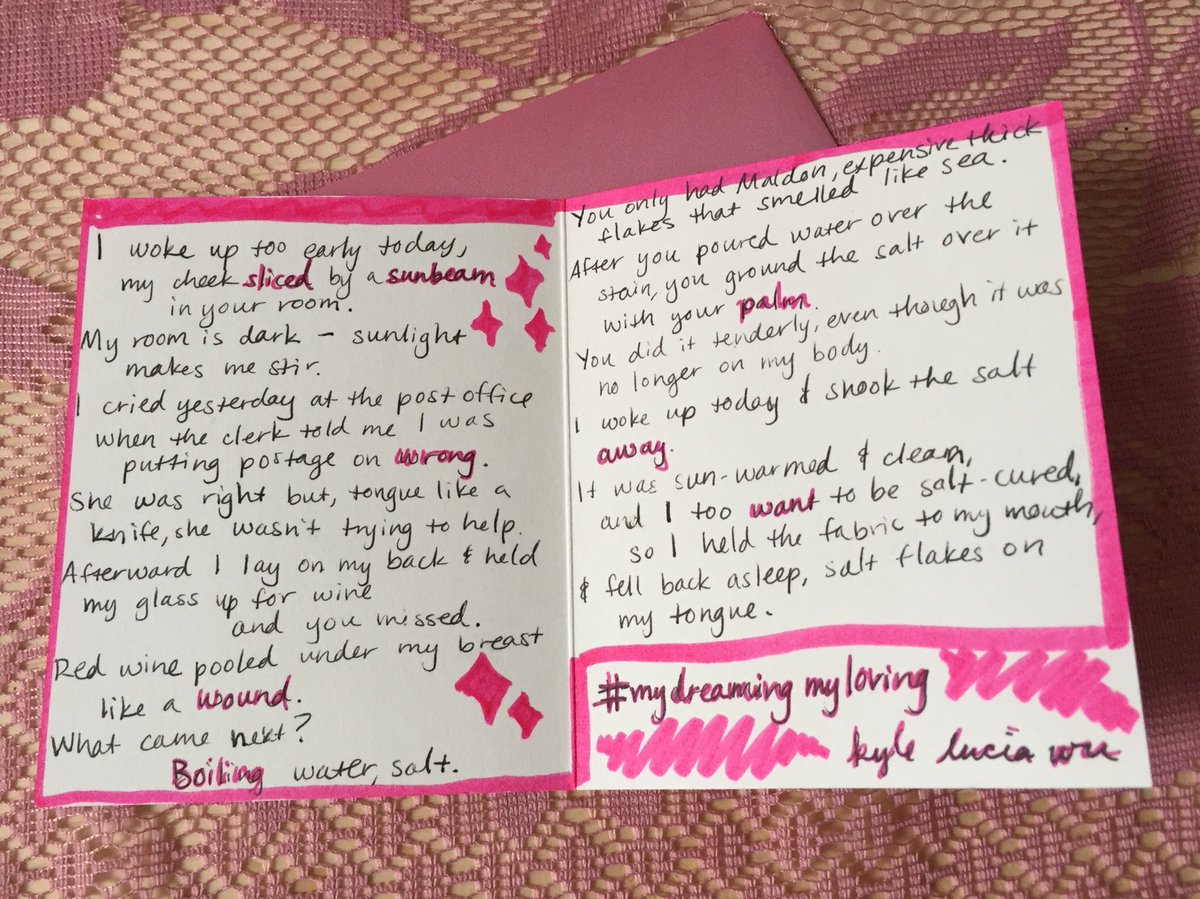 I woke up too early today,
my cheek sliced by a sunbeam
in your room.
My room is dark – sunlight
makes me stir.
I cried yesterday at the post office
when the clerk told me I was
putting postage on wrong.
She was right but, tongue like a
knife, she wasn't trying to help.
Afterward I lay on my back & held
my glass up for wine
and you missed.
Red wine pooled under my breast
like a wound.
What came next?
Boiling water, salt.
You only had Maldon, expensive thick
flakes that smelled like sea.
After you poured water over the
stain, you ground the salt over it
with your palm.
You did it tenderly, even though it was
no longer on my body.
I woke up today & shook the salt
away.
It was sun-warmed & clean,
and I too want to be salt-cured,
so I held the fabric to my mouth,
& fell back asleep, salt flakes on
my tongue.
#mydreaming my loving
kyle lucia wu